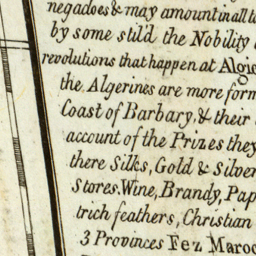 negadoes & may amount in all to
by some stild the Nobility
revolutions that happen at Algie
the Algerines are more form
Coast of Barbary, & their
account of the Prizes they
there Silks, Gold & Silver
Stores. Wine, Brandy, Pap
trich feathers, Christian
3 Provinces Fez Maroc